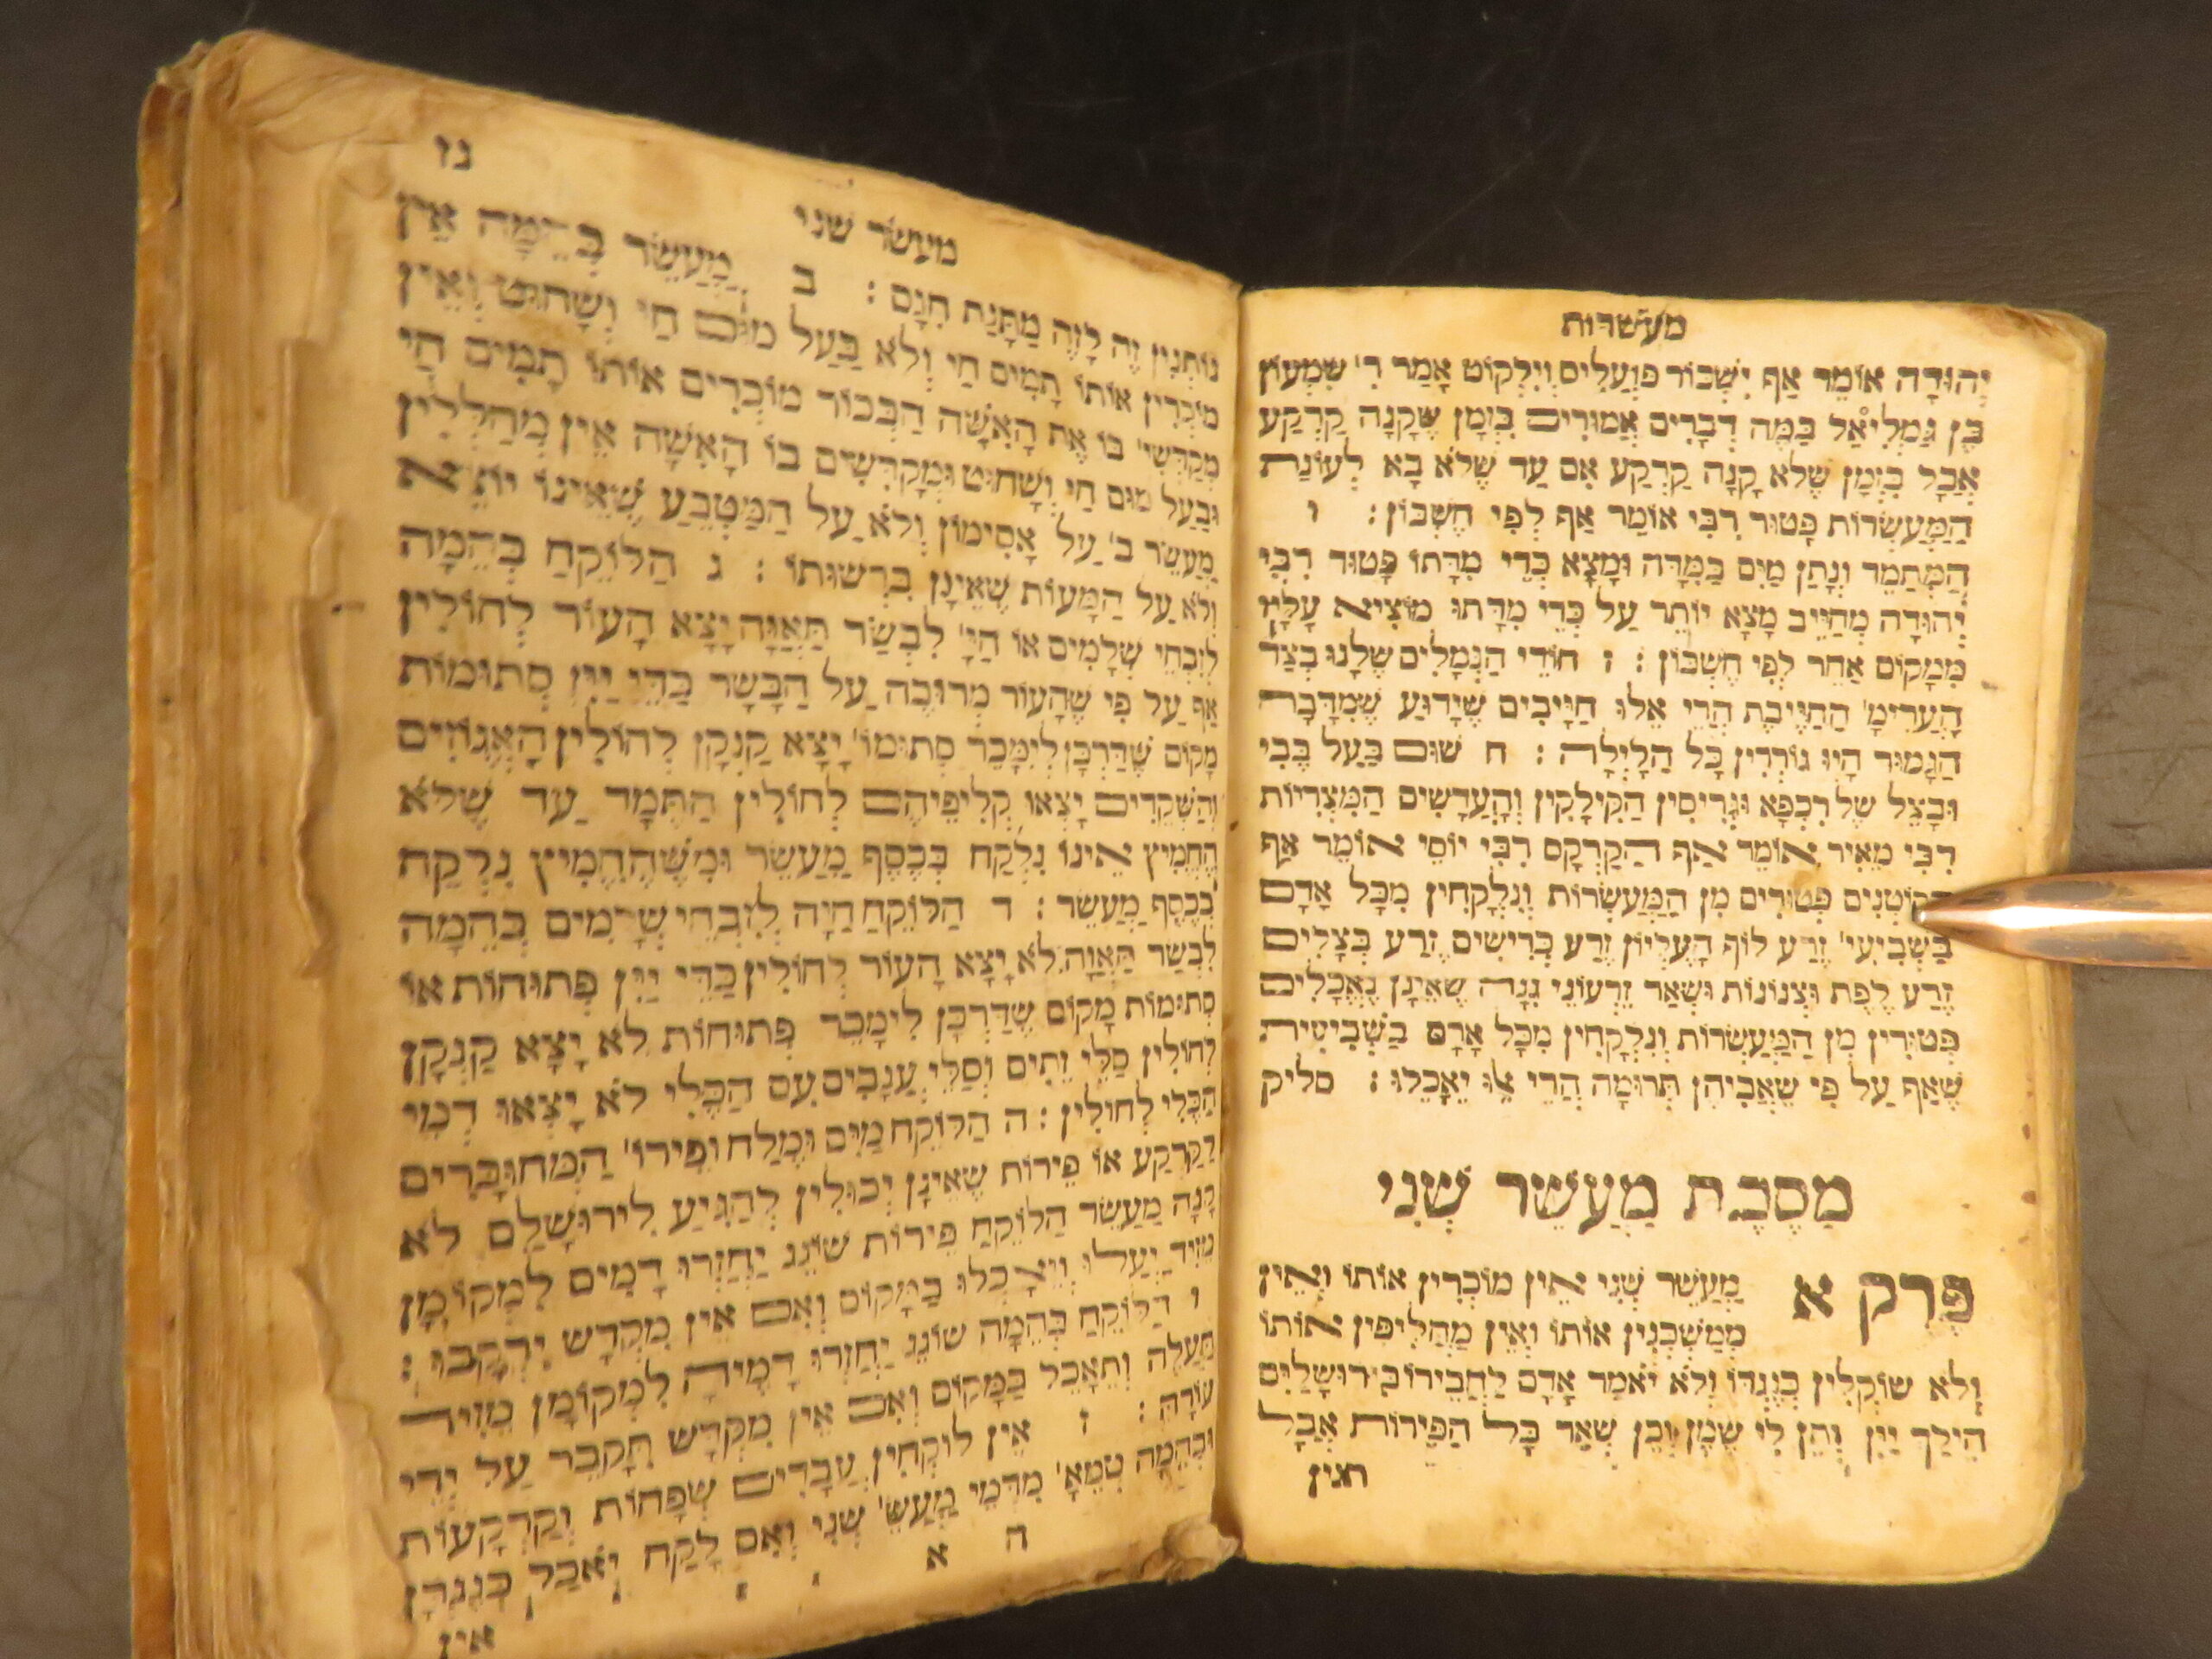 מעשרות
יְהוּדָה אוֹמֵר אַף יִשְׂכּוֹר פּוֹעֲלִים וְיִלְקוֹט אָמַר ר' שִׁמְעוֹן
בֶּן גַּמְלִיאֵל בַּמֶּה דְבָרִים אֲמוּרִים בִּזְמַן שֶׁקָּנָה קַרְקַע
אֲבָל בִּזְמַן שֶׁלֹּא קָנָה קַרְקַע אִם עַד שֶׁלֹּא בָא לְעוֹנַת
הַמַּעַשְׂרוֹת פָּטוּר רִבִּי אוֹמַר אַף לְפִי חֶשְׁבּוֹן : ו
הַמְּתַמֵּד וְנָתַן מַיִם בַּמִּדָּה וּמָצָא כְּדֵי מִדָּתוֹ פָּטוּר רִבִּי
יְהוּדָה מְחַיֵּיב מָצָא יוֹתֵר עַל כְּדֵי מִדָּתוֹ מוֹצִיא עָלָיו
מִמָּקוֹם אַחֵר לְפִי חֶשְׁבּוֹן : ז חוֹרֵי הַנְּמָלִים שֶׁלָּנוּ בְּצַד
הָעֲרִימָ' הַחַיֶּיבֶת הֲרֵי אֵלוּ חַיָּיבִים שֶׁיָּדוּעַ שֶׁמִּדָּבָר
הַגָּמוּר הָיוּ גוֹרְרִין כָּל הַלַּיְלָה : ח שׁוּם בַּעַל בֶּכִי
וּבָצֵל שֶׁל רִכְפָּא וּגְרִיסִין הַקִּילְקִין וְהָעֲדָשִׁים הַמִּצְרִיּוֹת
רִבִּי מֵאִיר אוֹמֵר אַף הַקַּרְקָס רִבִּי יוֹסֵי אוֹמֵר אַף
הַקּוֹטְנִים פְּטוּרִים מִן הַמַּעַשְׂרוֹת וְנִלְקָחִין מִכָּל אָדָם
בַּשְּׁבִיעִי' זֶרַע לוּף הָעֶלְיוֹן זֶרַע כְּרֵישִׁים זֶרַע בְּצָלִים
זֶרַע לֶפֶת וּצְנוֹנוֹת וּשְׁאַר זֵרְעוֹנֵי גִנָּה שֶׁאֵינָן נֶאֱכָלִים
פְּטוּרִין מִן הַמַּעַשְׂרוֹת וְנִלְקָחִין מִכָּל אָדָם בַּשְּׁבִיעִית
שֶׁאַף עַל פִּי שֶׁאֲבִיהֶן תְּרוּמָה הֲרֵי אֵלּוּ יֵאָכֵלוּ : סליק
מַסֶּכֶת מַעֲשֵׂר שְׁנִי
פֶּרֶק א
מַעֲשֵׂר שֵׁנִי אֵין מוֹכְרִין אוֹתוֹ וְאֵין
מְמַשְׁכְּנִין אוֹתוֹ וְאֵין מַחֲלִיפִין אוֹתוֹ
וְלֹא שׁוֹקְלִין כְּנֶגְדּוֹ וְלֹא יֹאמַר אָדָם לַחֲבֵירוֹ בִּירוּשָׁלַיִם
הֵילָךְ יַיִן וְתֵן לִי שֶׁמֶן וְכֵן שְׁאַר כָּל הַפֵּירוֹת אֲבָל
מעשר שני
נז
נוֹתְנִין זֶה לָזֶה מַתְּנַת חִנָּם : ב מַעֲשֵׂר בְּהֵמָה אֵין
מוֹכְרִין אוֹתוֹ תָּמִים חַי וְלֹא בַּעַל מוּם חַי וְשָׁחוּט וְאֵין
מְקַדְּשִׁי' בּוֹ אֶת הָאִשָּׁה הַבְּכוֹר מוֹכְרִים אוֹתוֹ תָּמִים חַי
וּבַעַל מוּם חַי וְשָׁחוּט וּמְקַדְּשִׁים בּוֹ הָאִשָּׁה אֵין מְחַלְּלִין
מַעֲשֵׂר ב' עַל אֲסִימוֹן וְלֹא עַל הַמַּטְבֵּעַ שֶׁאֵינוֹ יוֹצֵא
וְלֹא עַל הַמָּעוֹת שֶׁאֵינָן בִּרְשׁוּתוֹ : ג הַלּוֹקֵחַ בְּהֵמָה
לְזִבְחֵי שְׁלָמִים אוֹ חַיָּ' לִבְשַׂר תַּאֲוָה יָצָא הָעוֹר לְחוּלִין
אַף עַל פִּי שֶׁהָעוֹר מְרוּבֶּה עַל הַבָּשָׂר כַּדֵּי יַיִן סְתוּמוֹת
מָקוֹם שֶׁדַּרְכָּן לִימָּכֵר סְתוּמוֹ' יָצָא קַנְקָן לְחוּלִין הָאֱגוֹזִים
וְהַשְּׁקֵדִים יָצְאוּ קְלִיפֵּיהֶם לְחוּלִין הַתֶּמֶד עַד שֶׁלֹּא
הֶחֱמִיץ אֵינוֹ נִלְקַח בְּכֶסֶף מַעֲשֵׂר וּמִשֶּׁהֶחֱמִיץ נִלְקַח
בְּכֶסֶף מַעֲשֵׂר : ד הַלּוֹקֵחַ חַיָּה לְזִבְחֵי שְׁלָמִים בְּהֵמָה
לִבְשַׂר תַּאֲוָה לֹא יָצָא הָעוֹר לְחוּלִין כַּדֵּי יַיִן פְּתוּחוֹת אוֹ
סְתוּמוֹת מָקוֹם שֶׁדַּרְכָּן לִימָּכֵר פְּתוּחוֹת לֹא יָצָא קַנְקָן
לְחוּלִין סַלֵּי זֵתִים וְסַלֵּי עֲנָבִים עִם הַכְּלִי לֹא יָצְאוּ דְמֵי
הַכְּלִי לְחוּלִין : ה הַלּוֹקֵחַ מַיִם וּמֶלַח וּפֵירוֹ' הַמְּחוּבָּרִים
לַקַּרְקַע אוֹ פֵּירוֹת שֶׁאֵינָן יְכוּלִין לְהַגִּיעַ לִירוּשָׁלַם לֹא
קָנָה מַעֲשֵׂר הַלּוֹקֵחַ פֵּירוֹת שׁוֹגֵג יַחְזְרוּ דָמִים לִמְקוֹמָן
מֵזִיד יַעֲלוּ וְיֵאָכְלוּ בַּמָּקוֹם וְאִם אֵין מִקְדָּשׁ יִרְקָבוּ :
ו הַלּוֹקֵחַ בְּהֵמָה שׁוֹגֵג יַחְזְרוּ דָמֶיהָ לִמְקוֹמָן מֵזִיד
תַּעֲלֶה וְתֵאָכֵל בַּמָּקוֹם וְאִם אֵין מִקְדָּשׁ תִּקָּבֵר עַל יְדֵי
עוֹרָהּ : ז אֵין לוֹקְחִין עֲבָדִים שְׁפָחוֹת וְקַרְקָעוֹת
וּבְהֵמָה טְמֵאָ' מִדְּמֵי מַעֲשֵׂ' שֵׁנִי וְאִם לָקַח יֹאכַל כְּנֶגְדָּן
ח א
אין